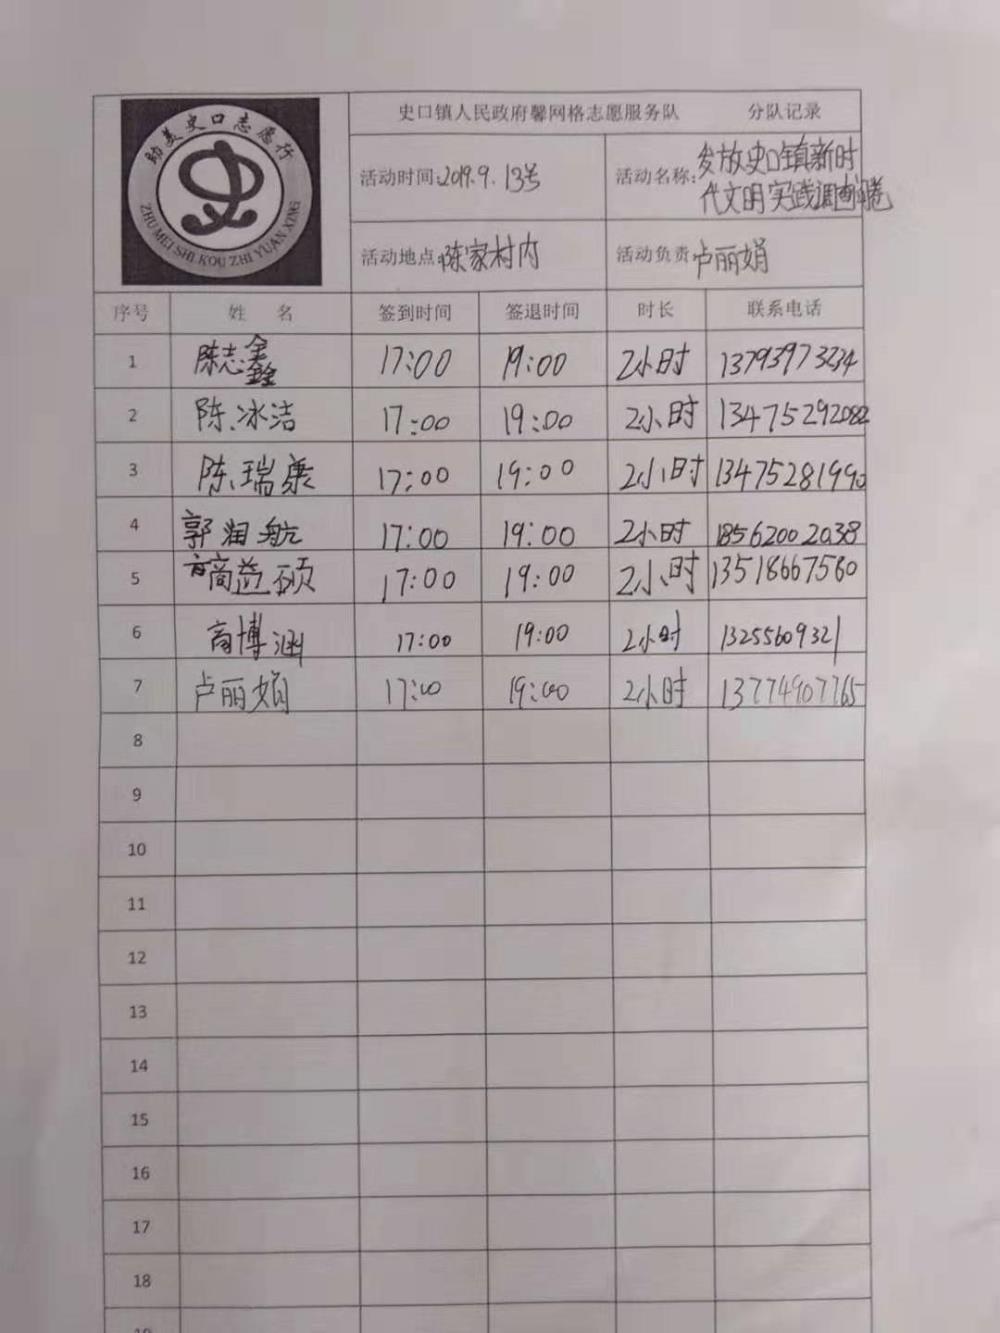 助美史口志愿行
ZHU MEI SHI KOU ZHI YUAN XING
史口镇人民政府馨网格志愿服务队 分队记录
活动时间:2019.9.13号
活动名称:发放史口镇新时
代文明实践调查问卷
活动地点:陈家村内
活动负责:卢丽娟
序号 姓 名 签到时间 签退时间 时长 联系电话
1 陈志鑫 17:00 19:00 2小时 13793973234
2 陈冰洁 17:00 19:00 2小时 13475292082
3 陈瑞康 17:00 19:00 2小时 13475281990
4 郭润航 17:00 19:00 2小时 18562002038
5 商益硕 17:00 19:00 2小时 13518667580
6 商博涵 17:00 19:00 2小时 13255609321
7 卢丽娟 17:00 19:00 2小时 13774907765
8
9
10
11
12
13
14
15
16
17
18
19